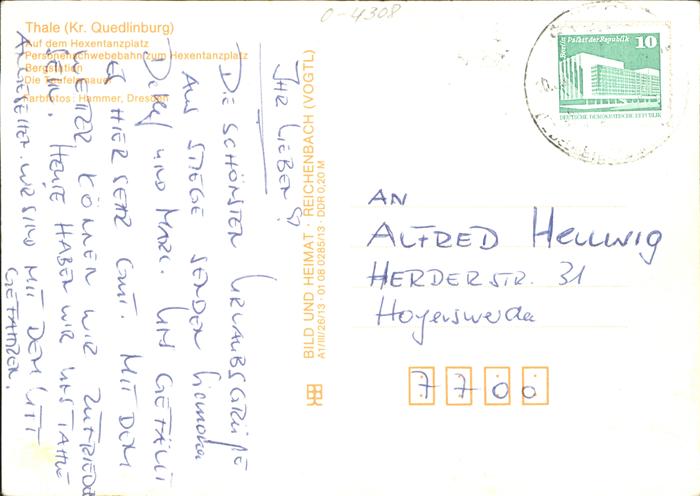 0-4308
Thale (Kr. Quedlinburg)
Auf dem Hexentanzplatz
Personenschwebebahn zum Hexentanzplatz
Bergstation
Die Teufelsmauer
Farbfotos: Hammer, Dresden
IHR LIEBEN!
DIE SCHÖNSTEN URLAUBSGRÜßE
AUS STIEGE SENDEN
DETLEF UND MARK. UNS GEFÄLLT
ES HIER SEHR GUT. MIT DEM
WETTER KÖNNEN WIR ZUFRIEDEN
SEIN. HEUTE HABEN WIR UNS THALE
ANGESEHEN. WIR SIND MIT DEM
GEFAHREN.
BILD UND HEIMAT · REICHENBACH (VOGTL)
A1/III/26/13 · 01 08 0285/13 · DDR 0,20 M
Berlin, Palast der Republik
10
DEUTSCHE DEMOKRATISCHE REPUBLIK
AN
ALFRED HELLWIG
HERDERSTR. 31
Hoyerswerda
7700